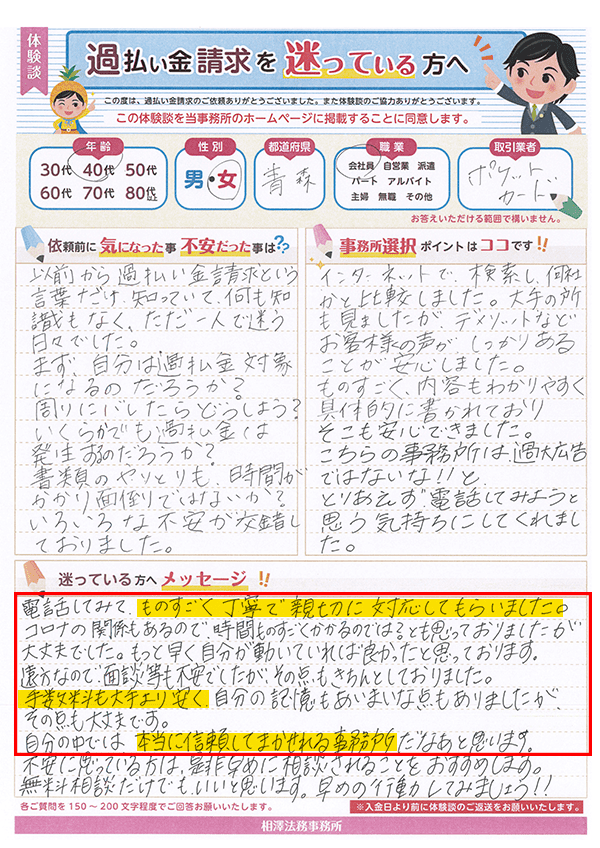 体験談
過払い金請求を迷っている方へ
この度は、過払い金請求のご依頼ありがとうございました。また体験談のご協力ありがとうございます。
この体験談を当事務所のホームページに掲載することに同意します。
年齢
30代 40代 50代
60代 70代 80代以上
性別
男・女
都道府県
青森
職業
会社員 自営業 派遣
パート アルバイト
主婦 無職 その他
取引業者
ポケット
カード
お答えいただける範囲で構いません。
依頼前に気になった事 不安だった事は??
以前から過払い金請求という
言葉だけ知っていて、何も知
識もなく、ただ一人で迷う
日々でした。
まず、自分は過払金対象
になるのだろうか?
周りにバレたらどうしよう?
いくらかでも過払金は
発生するのだろうか?
書類のやりとりも、時間が
かかり面倒ではないか?
いろいろな不安が交錯し
ておりました。
事務所選択ポイントはココです!!
インターネットで、検索し、何社
かと比較しました。大手の所
も見ましたが、デメリットなど
お客様の声が、しっかりある
ことが安心しました。
ものすごく、内容もわかりやすく
具体的に書かれており
そこも安心できました。
こちらの事務所は、過大広告
ではないな!!と
とりあえず電話してみようと
思う気持ちにしてくれまし
た。
迷っている方へメッセージ!!
電話してみて、ものすごく丁寧で親切に対応してもらいました。
コロナの関係もあるので、時間ものすごくかかるのでは?とも思っておりましたが
大丈夫でした。もっと早く自分が動いていれば良かったと思っております。
遠方なので、面談等も不安でしたが、その点もきちんとしておりました。
手数料も大手より安く、自分の記憶もあいまいな点もありましたが、
その点も大丈夫です。
自分の中では、本当に信頼してまかせれる事務所だなあと思います。
不安に思っている方は、是非早めに相談されることをおすすめします。
無料相談だけでも、いいと思います。早めの行動してみましょう!!
各ご質問を150~200文字程度でご回答お願いいたします。
※入金日より前に体験談のご返送をお願いいたします。
相澤法務事務所